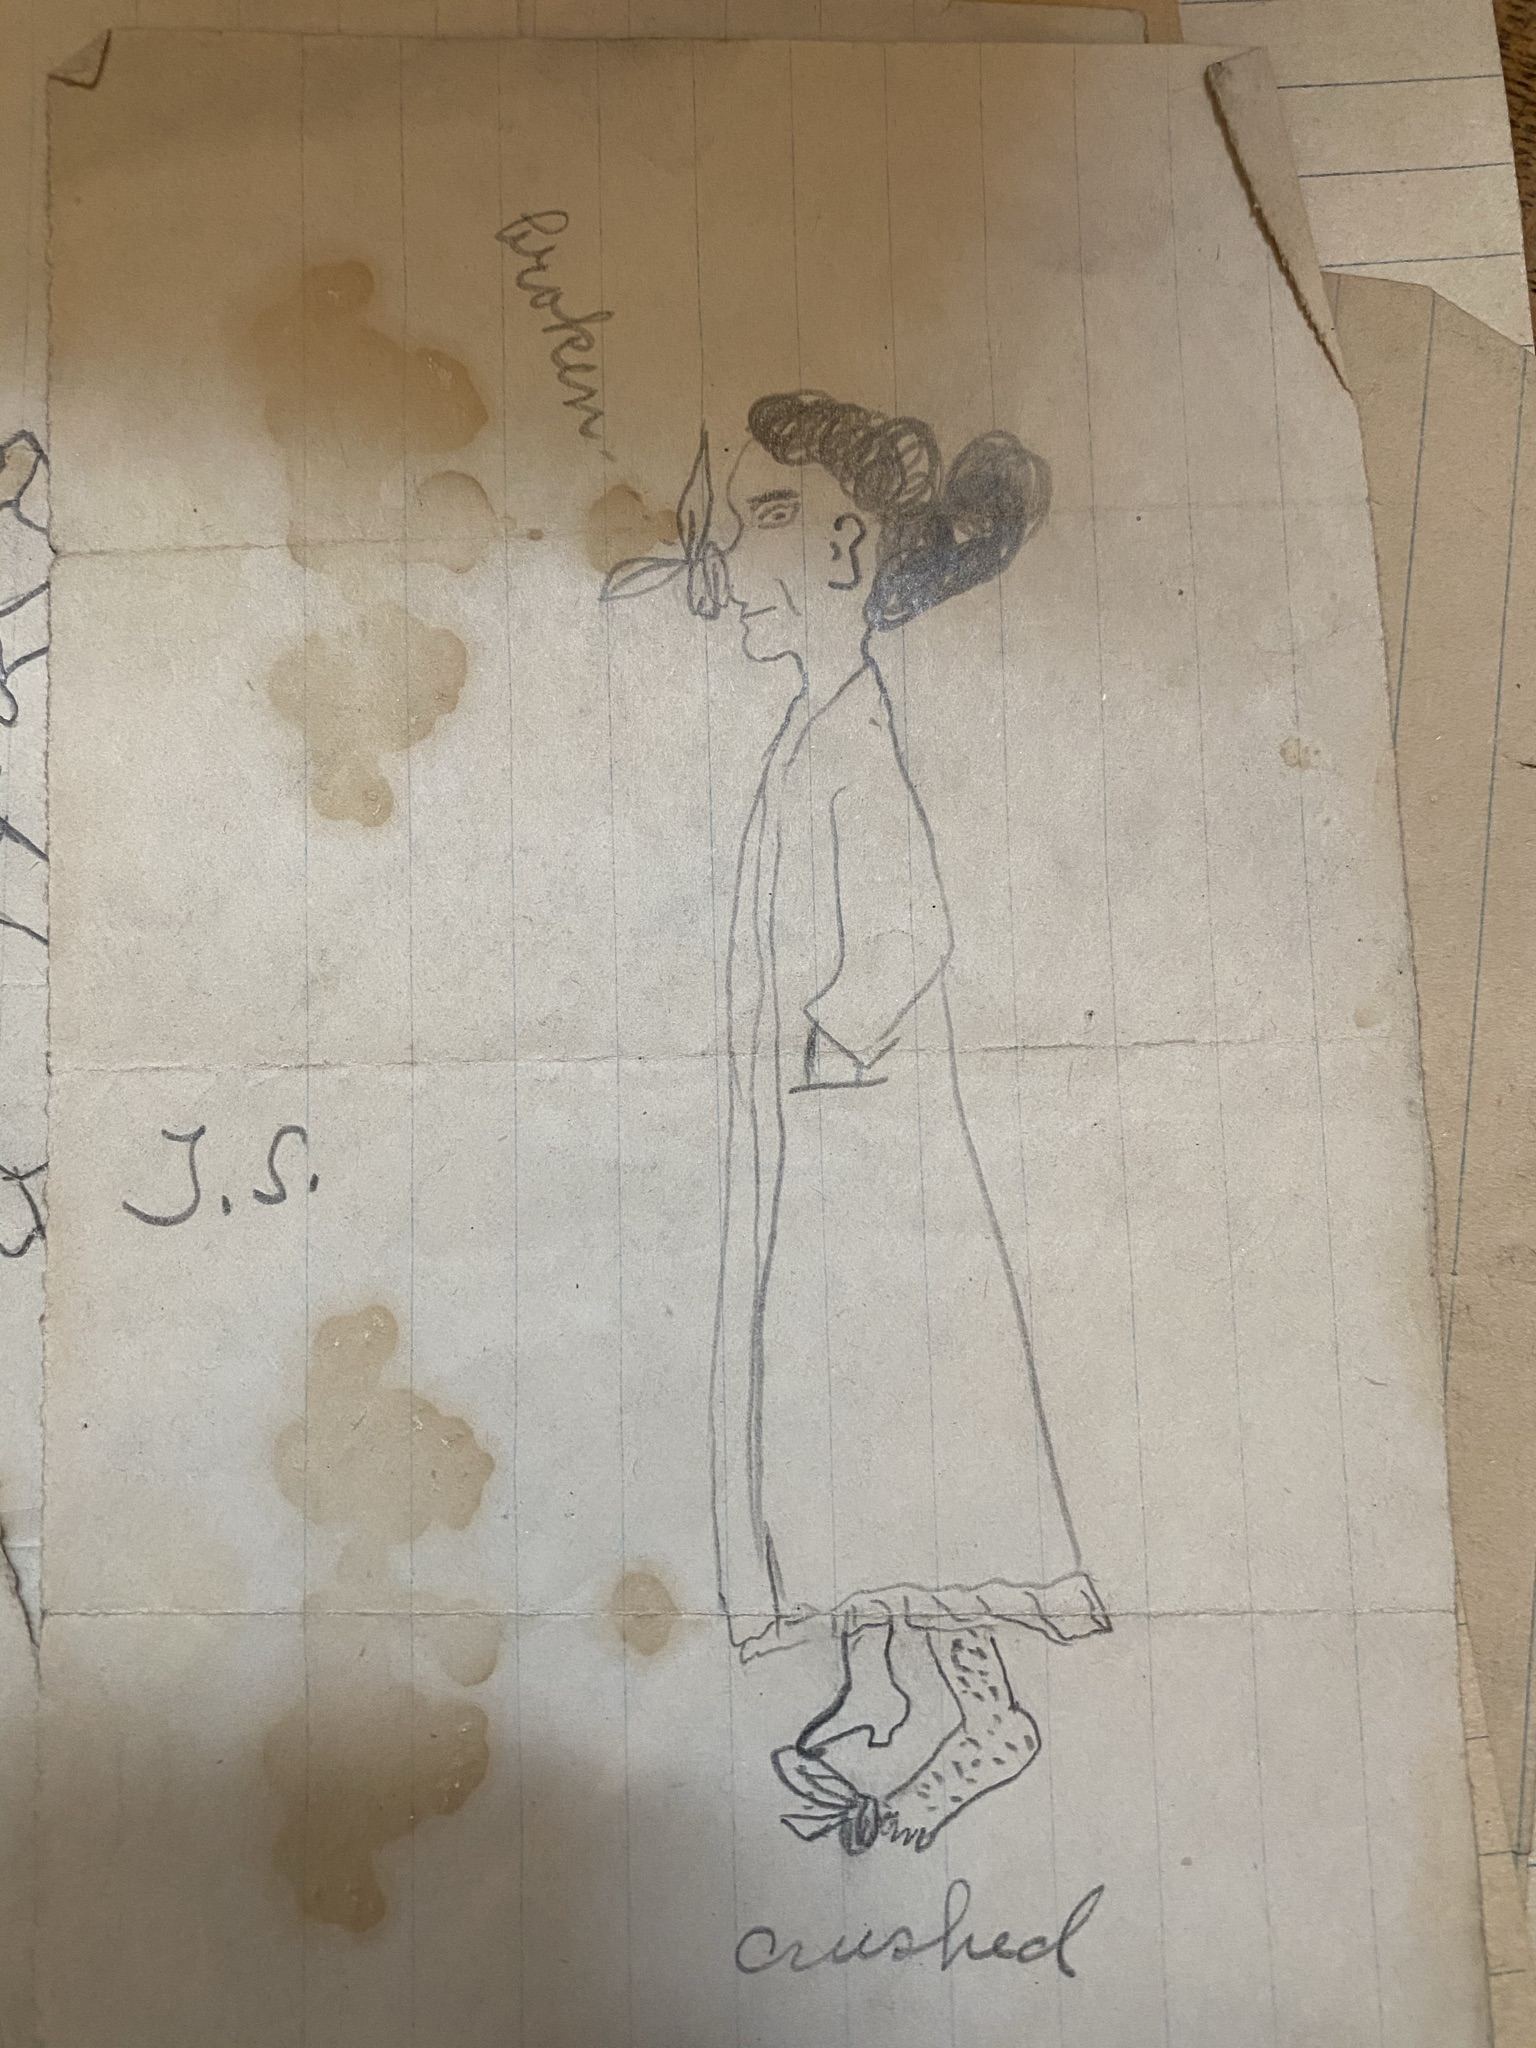 broken
J.S.
crushed